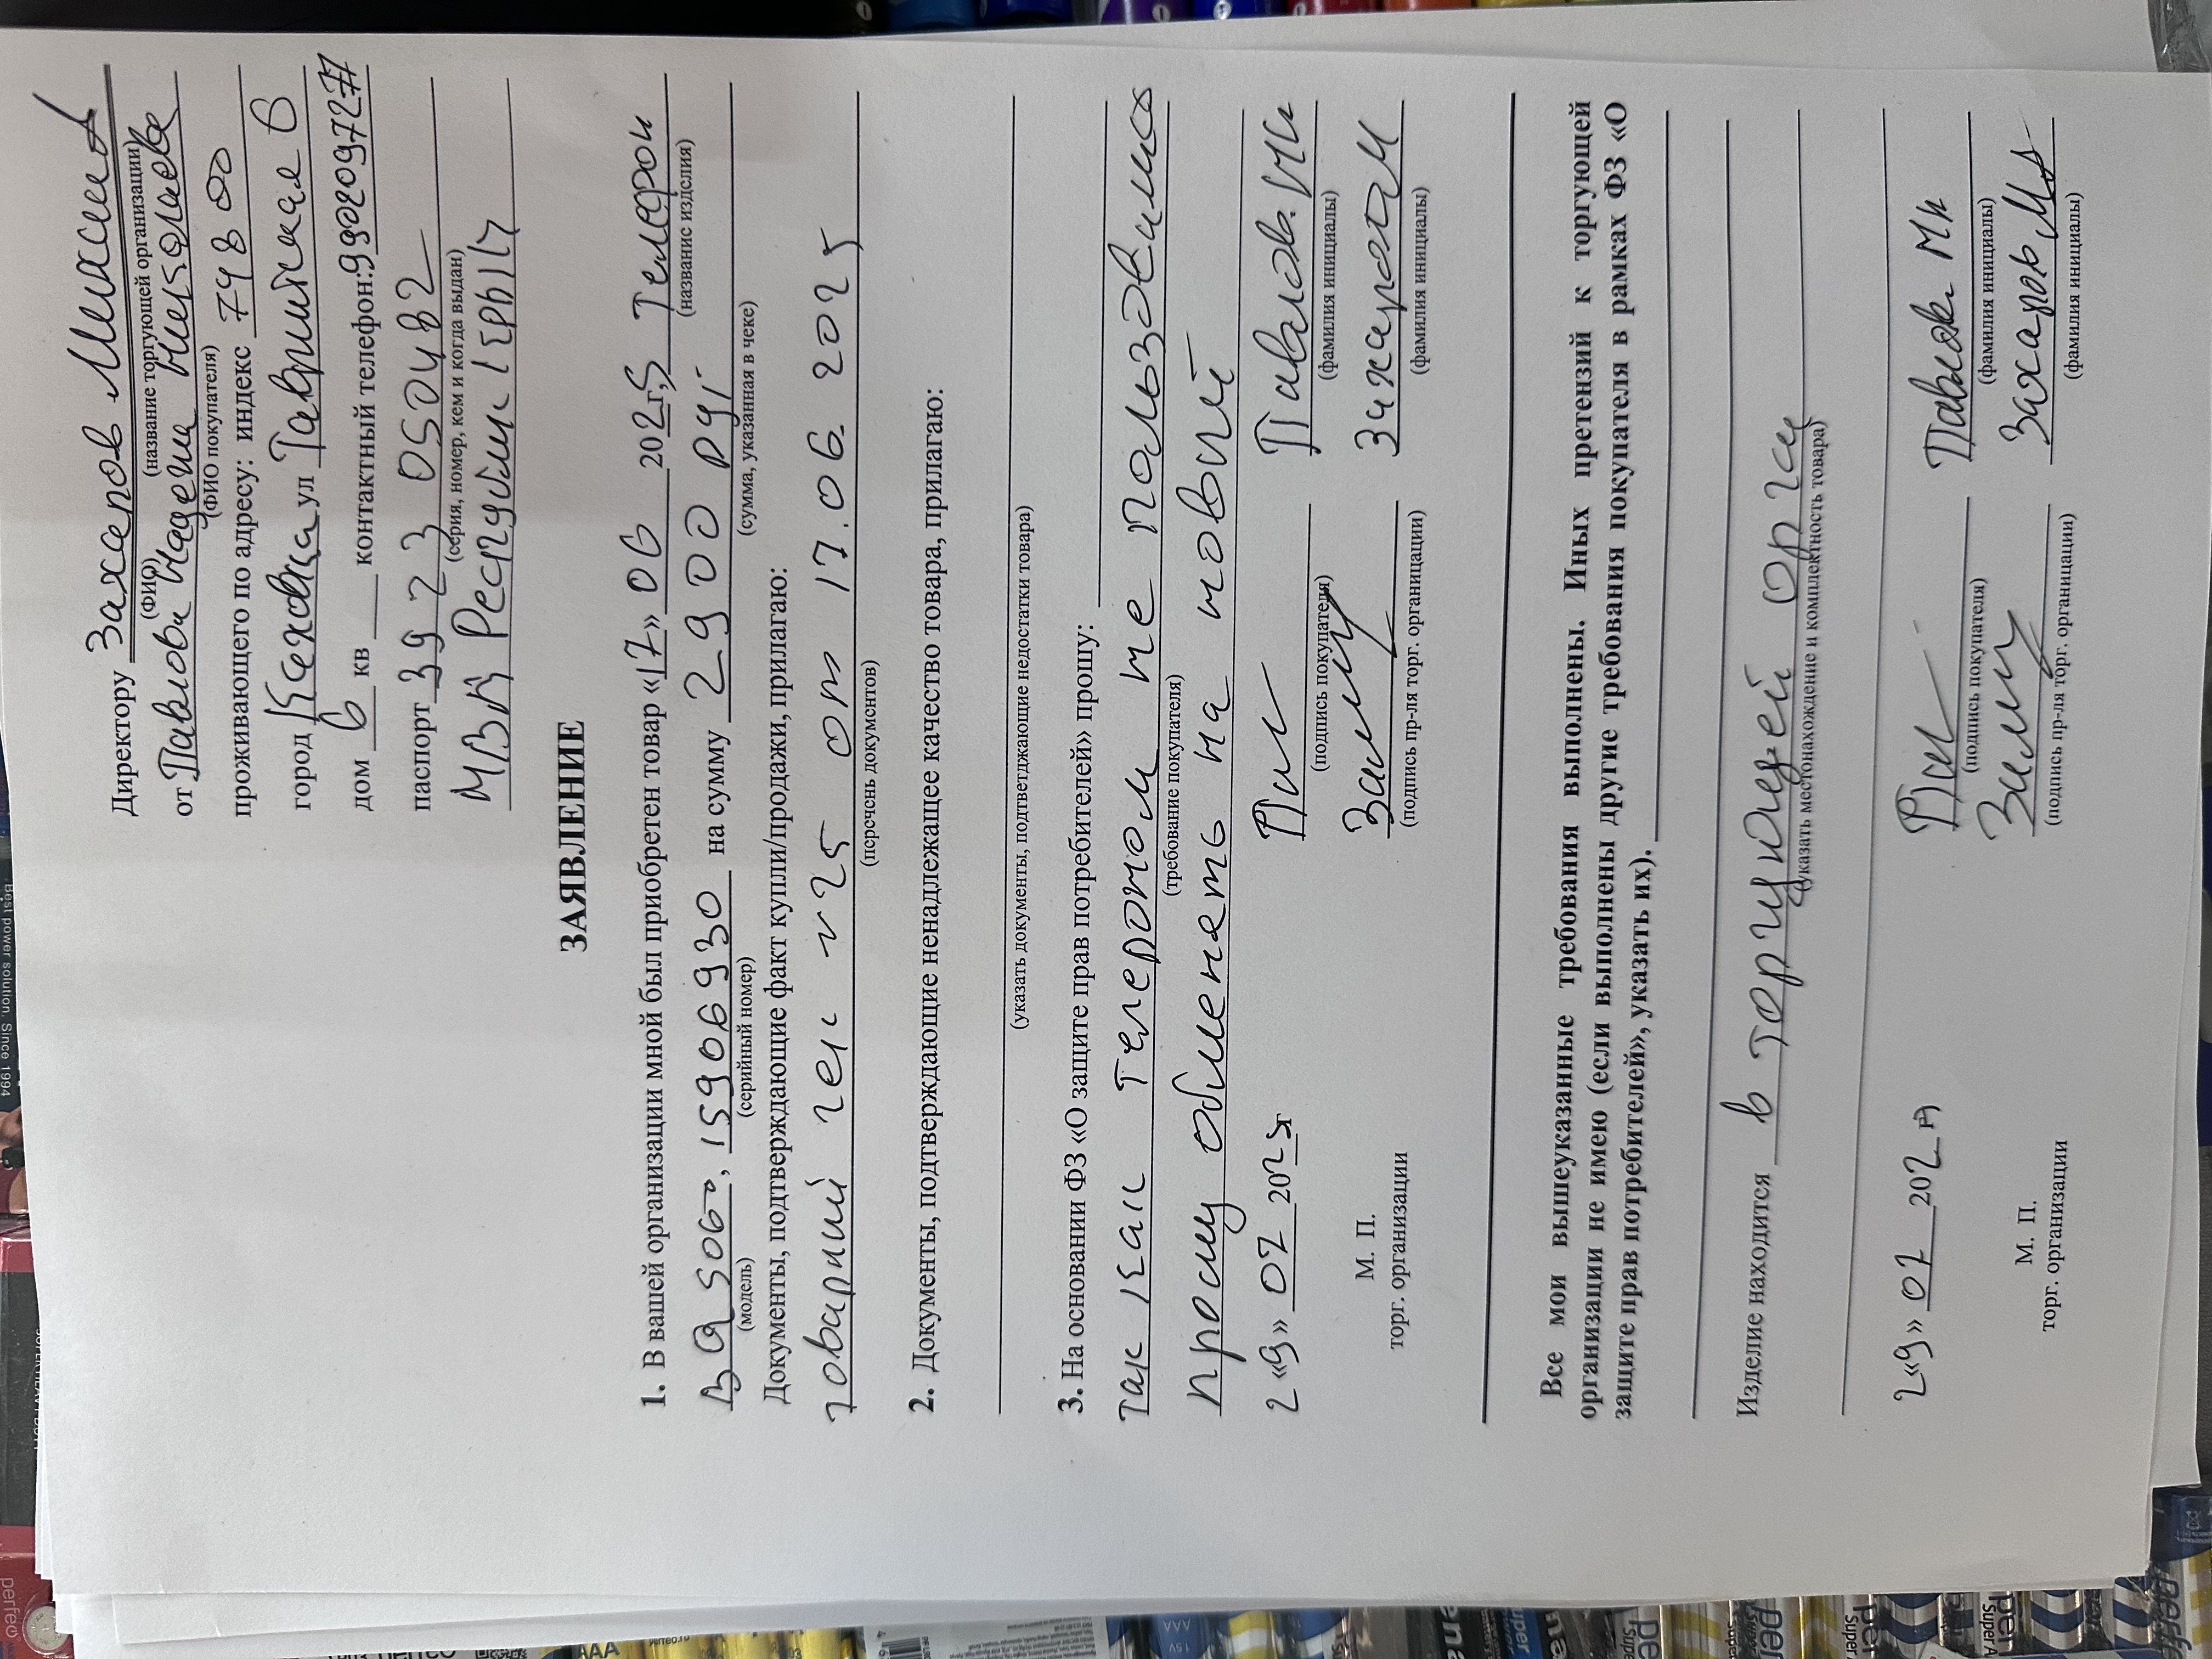 Директору Захаров Михаил А
(ФИО) (название торгующей организации)
от Павлов Надежда Николаевна
(ФИО покупателя)
проживающего по адресу: индекс 74800
город Каховка ул Таврийская В
дом 6 кв ____ контактный телефон: 99020972 77
паспорт 39 23 050482
(серия, номер, кем и когда выдан)
МВД Республики Крым
ЗАЯВЛЕНИЕ
1. В вашей организации мной был приобретен товар «17» 06 2025г, Телефон
(название изделия)
BQ 5060, 15906930 на сумму 2900 руб
(модель) (серийный номер) (сумма, указанная в чеке)
Документы, подтверждающие факт купли/продажи, прилагаю:
товарный чек №25 от 17.06.2025
(перечень документов)
2. Документы, подтверждающие ненадлежащее качество товара, прилагаю:
(указать документы, подтветджающие недостатки товара)
3. На основании ФЗ «О защите прав потребителей» прошу:
так как телефоном не пользовались
(требование покупателя)
прошу обменять на новый
2«9» 07 2025г Павлов НН
(подпись покупателя) (фамилия инициалы)
Захаров М
М. П.
торг. организации (подпись пр-ля торг. организации) (фамилия инициалы)
Все мои вышеуказанные требования выполнены. Иных претензий к торгующей
организации не имею (если выполнены другие требования покупателя в рамках ФЗ «О
защите прав потребителей», указать их).
Изделие находится в торгующей орган
(указать местонахождение и комплектность товара)
2«9» 07 202 Павлов НН
(подпись покупателя) (фамилия инициалы)
Захаров МА
М. П.
торг. организации (подпись пр-ля торг. организации) (фамилия инициалы)
Best power solution. Since 1994